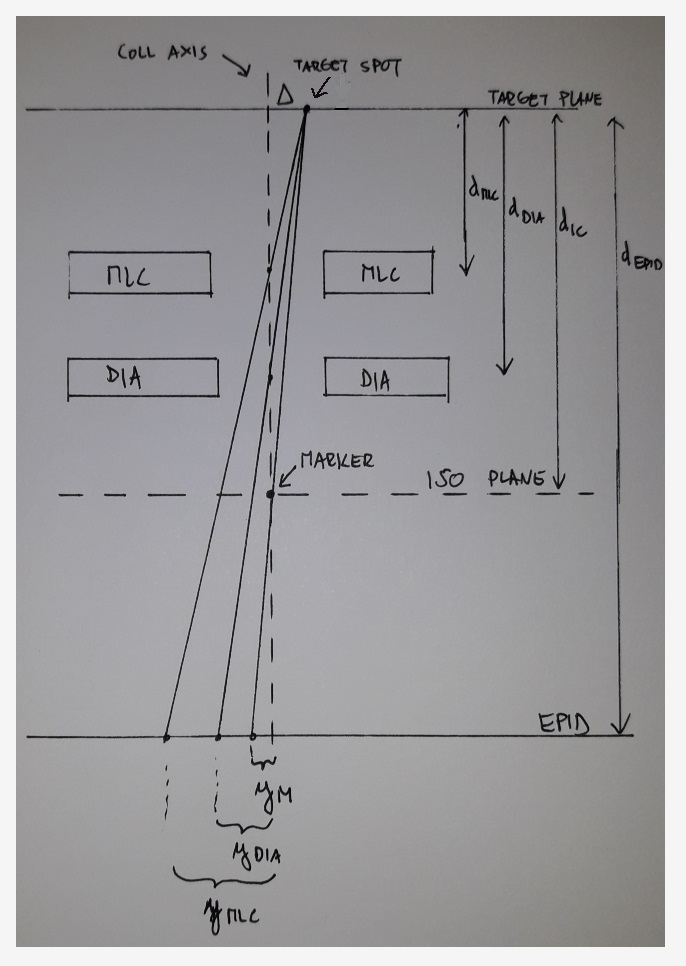 COLL AXIS
TARGET SPOT
Δ
TARGET PLANE
dMLC
dDIA
dIC
dEPID
MLC
MLC
DIA
DIA
MARKER
ISO PLANE
EPID
yM
yDIA
yMLC